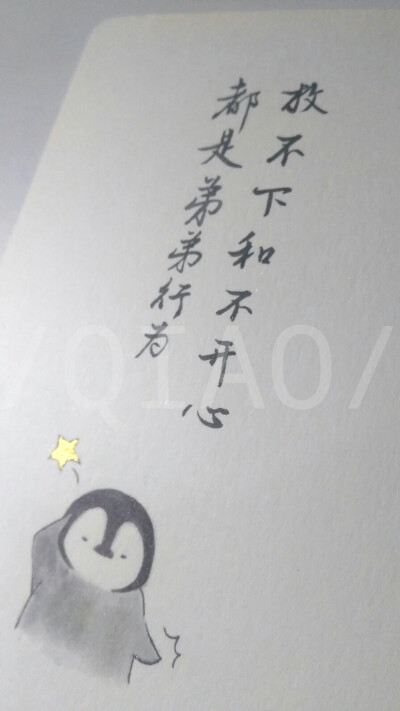 放不下和不开心
都是弟弟行为
/QIAO/